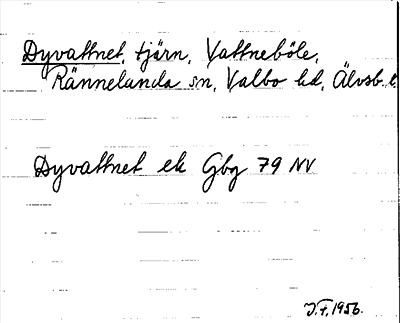 Dyvattnet, tjärn, Vattneböle,
Rännelanda sn, Valbo hd, Älvsb. l.
Dyvattnet ek Gbg 79 NV
J.F. 1956.